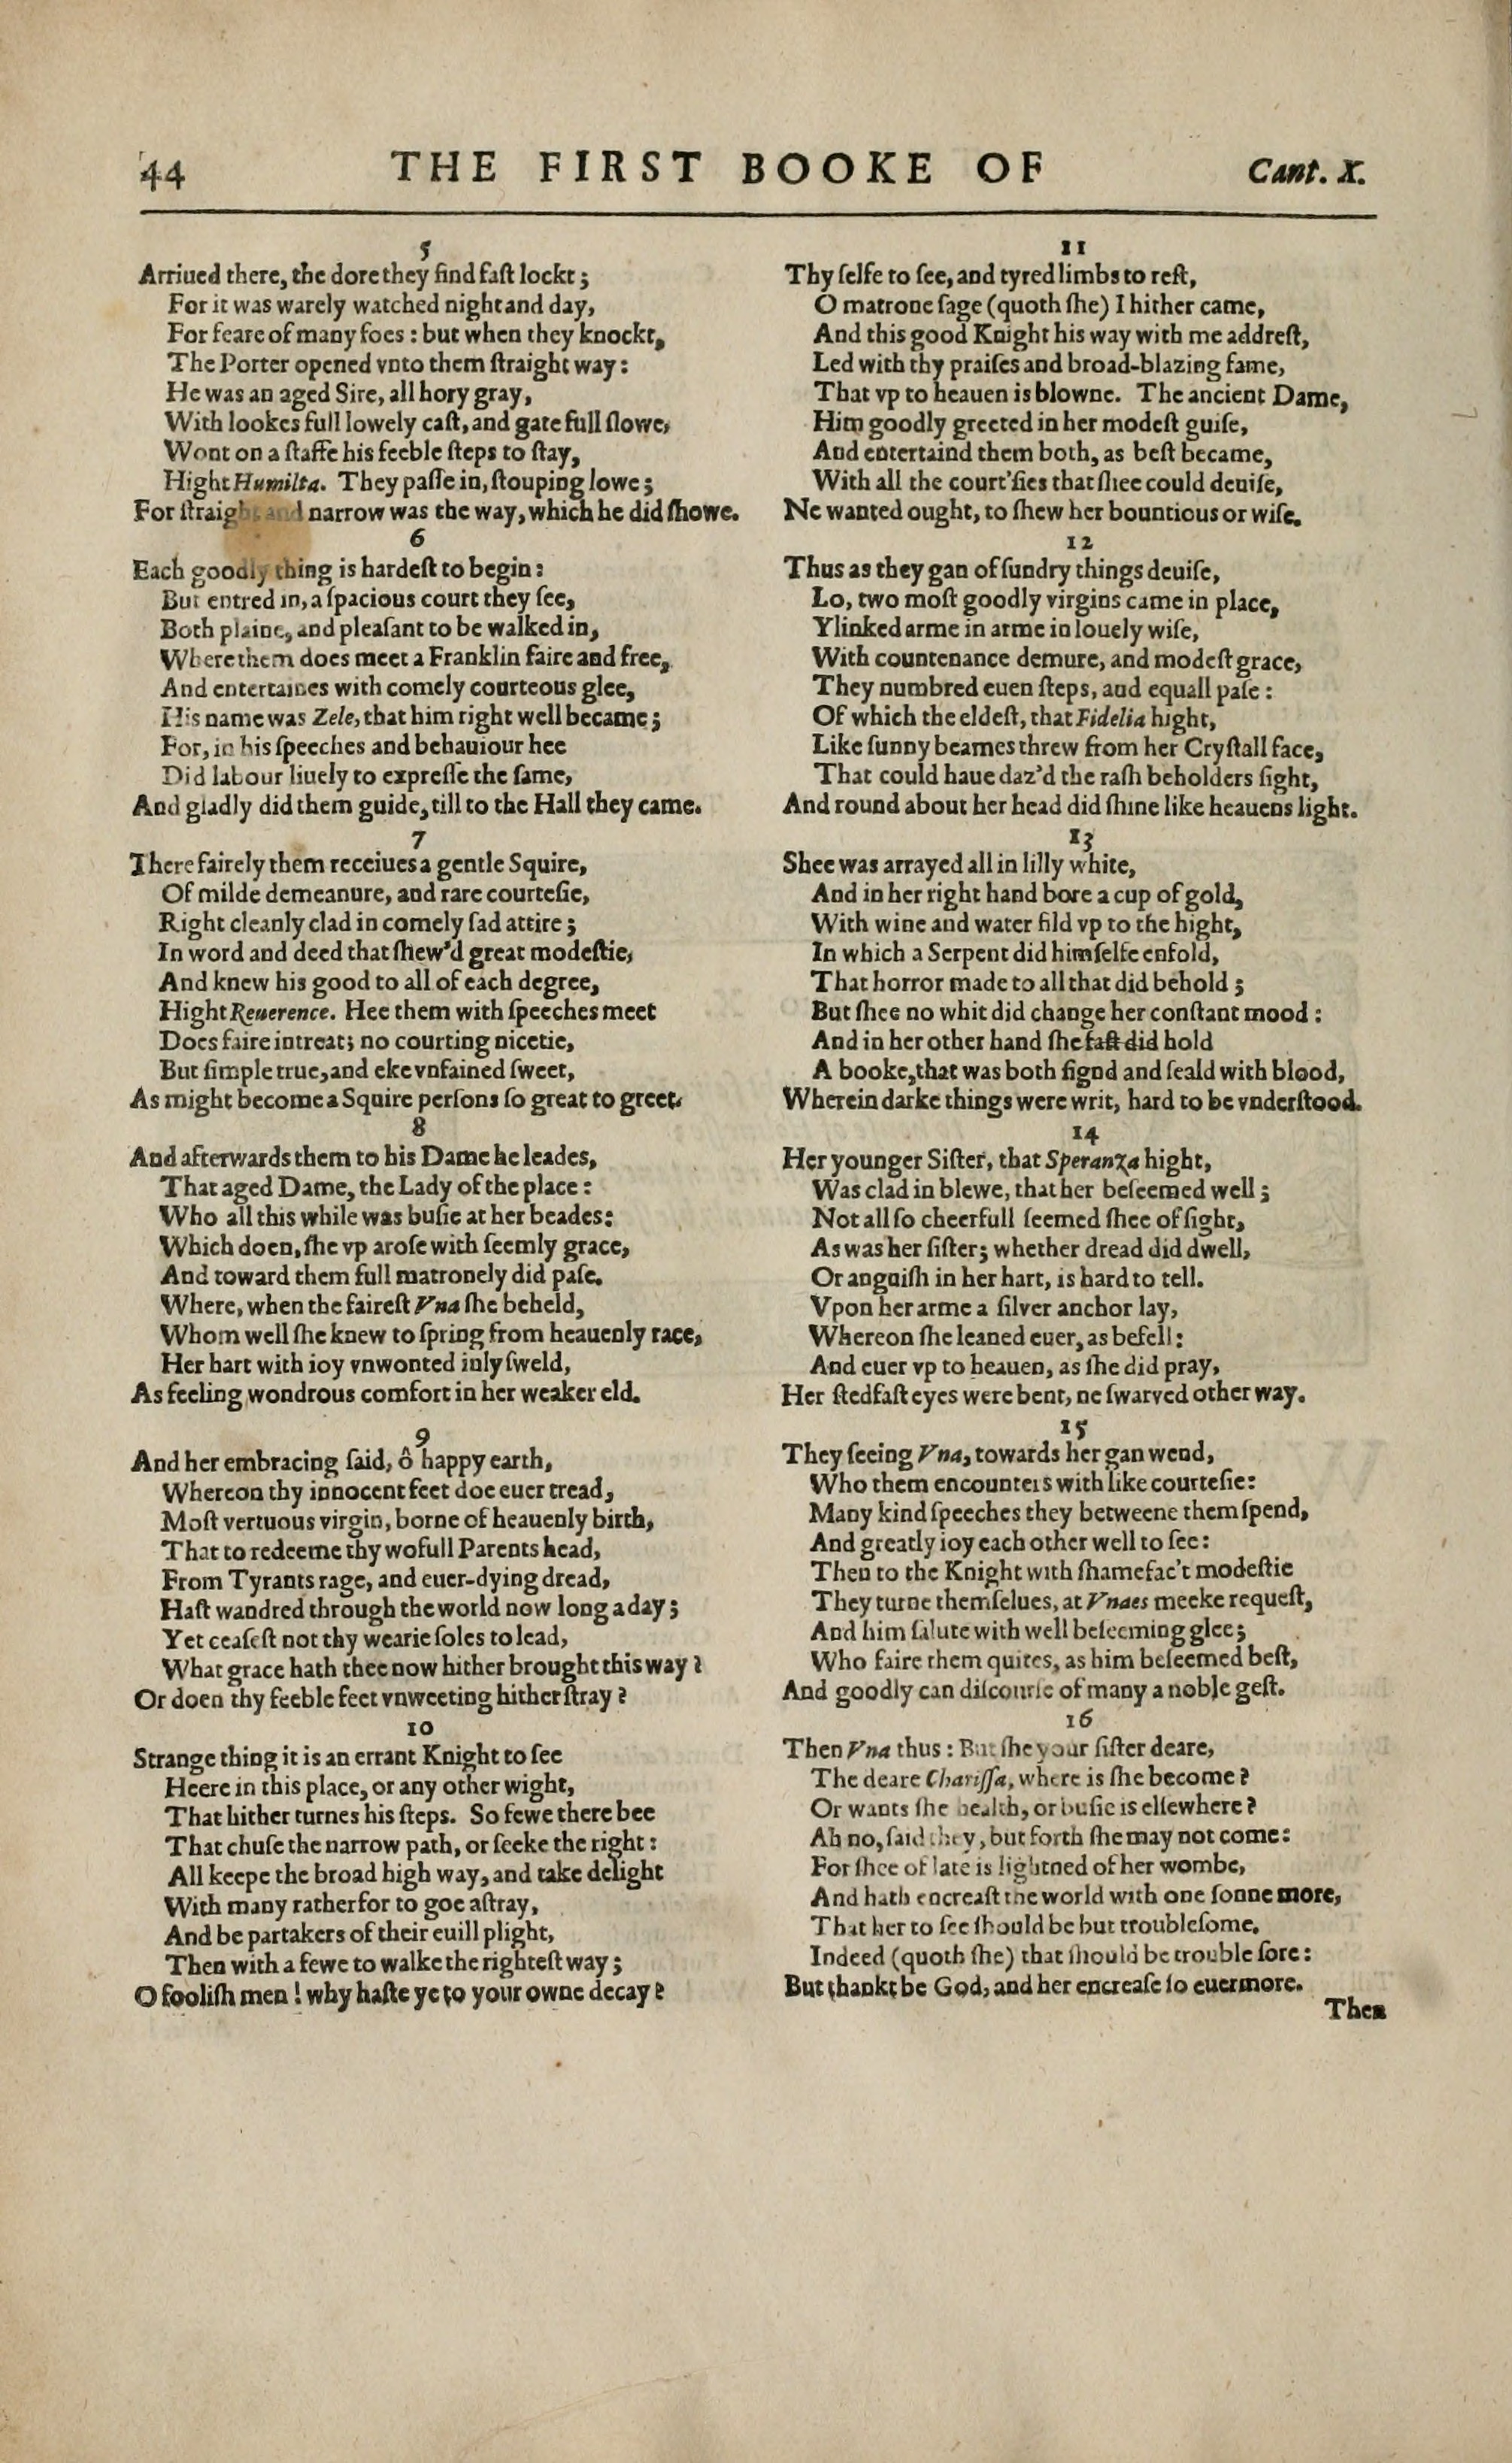 44 THE FIRST BOOKE OF Cant. X.
5
Arriued there, the dore they find faſt lockt;
For it was warely watched night and day,
For feare of many foes: but when they knockt,
The Porter opened vnto them ſtraight way:
He was an aged Sire, all hory gray,
With lookes full lowely caſt, and gate full ſlowe,
Wont on a ſtaffe his feeble ſteps to ſtay,
Hight Humilta. They paſſe in, ſtouping lowe;
For ſtraight and narrow was the way, which he did ſhowe.
6
Each goodly thing is hardeſt to begin:
But entred in, a ſpacious court they ſee,
Both plaine, and pleaſant to be walked in,
Where them does meet a Franklin faire and free,
And entertaines with comely courteous glee,
His name was Zele, that him right well became;
For, in his ſpeeches and behauiour hee
Did labour liuely to expreſſe the ſame,
And gladly did them guide, till to the Hall they came.
7
There fairely them receiues a gentle Squire,
Of milde demeanure, and rare courteſie,
Right cleanly clad in comely ſad attire;
In word and deed that ſhew'd great modeſtie,
And knew his good to all of each degree,
Hight Reuerence. Hee them with ſpeeches meet
Does faire intreat; no courting nicetie,
But ſimple true, and eke vnfained ſweet,
As might become a Squire perſons ſo great to greet.
8
And afterwards them to his Dame he leades,
That aged Dame, the Lady of the place:
Who all this while was buſie at her beades:
Which doen, ſhe vp aroſe with ſeemly grace,
And toward them full matronely did paſe.
Where, when the faireſt Vna ſhe beheld,
Whom well ſhe knew to ſpring from heauenly race,
Her hart with ioy vnwonted inly ſweld,
As feeling wondrous comfort in her weaker eld.
9
And her embracing ſaid, ô happy earth,
Whereon thy innocent feet doe euer tread,
Moſt vertuous virgin, borne of heauenly birth,
That to redeeme thy wofull Parents head,
From Tyrants rage, and euer-dying dread,
Haſt wandred through the world now long a day;
Yet ceaſeſt not thy wearie ſoles to lead,
What grace hath thee now hither brought this way?
Or doen thy feeble feet vnweeting hither ſtray?
10
Strange thing it is an errant Knight to ſee
Heere in this place, or any other wight,
That hither turnes his ſteps. So fewe there bee
That chuſe the narrow path, or ſeeke the right:
All keepe the broad high way, and take delight
With many rather for to goe aſtray,
And be partakers of their euill plight,
Then with a fewe to walke the righteſt way;
O fooliſh men! why haſte ye to your owne decay?
11
Thy ſelfe to ſee, and tyred limbs to reſt,
O matrone ſage (quoth ſhe) I hither came,
And this good Knight his way with me addreſt,
Led with thy praiſes and broad-blazing fame,
That vp to heauen is blowne. The ancient Dame,
Him goodly greeted in her modeſt guiſe,
And entertaind them both, as beſt became,
With all the court'ſies that ſhee could deuiſe,
Ne wanted ought, to ſhew her bountious or wiſe.
12
Thus as they gan of ſundry things deuiſe,
Lo, two moſt goodly virgins came in place,
Ylinked arme in arme in louely wiſe,
With countenance demure, and modeſt grace,
They numbred euen ſteps, and equall paſe:
Of which the eldeſt, that Fidelia hight,
Like ſunny beames threw from her Cryſtall face,
That could haue daz'd the raſh beholders ſight,
And round about her head did ſhine like heauens light.
13
Shee was arrayed all in lilly white,
And in her right hand bore a cup of gold,
With wine and water fild vp to the hight,
In which a Serpent did himſelfe enfold,
That horror made to all that did behold;
But ſhee no whit did change her conſtant mood:
And in her other hand ſhe faſt did hold
A booke, that was both ſignd and ſeald with blood,
Wherein darke things were writ, hard to be vnderſtood.
14
Her younger Siſter, that Speranza hight,
Was clad in blewe, that her beſeemed well;
Not all ſo cheerfull ſeemed ſhee of ſight,
As was her ſiſter; whether dread did dwell,
Or anguiſh in her hart, is hard to tell.
Vpon her arme a ſilver anchor lay,
Whereon ſhe leaned euer, as befell:
And euer vp to heauen, as ſhe did pray,
Her ſtedfaſt eyes were bent, ne ſwarved other way.
15
They ſeeing Vna, towards her gan wend,
Who them encounters with like courteſie:
Many kind ſpeeches they betweene them ſpend,
And greatly ioy each other well to ſee:
Then to the Knight with ſhamefac't modeſtie
They turne themſelues, at Vnaes meeke requeſt,
And him ſalute with well beſeeming glee;
Who faire them quites, as him beſeemed beſt,
And goodly can diſcourſe of many a noble geſt.
16
Then Vna thus: But ſhe your ſiſter deare,
The deare Chariſſa, where is ſhe become?
Or wants ſhe health, or buſie is elſewhere?
Ah no, ſaid they, but forth ſhe may not come:
For ſhee of late is lightned of her wombe,
And hath encreaſt the world with one ſonne more,
That her to ſee ſhould be but troubleſome.
Indeed (quoth ſhe) that ſhould be trouble ſore:
But thankt be God, and her encreaſe ſo euermore.
Then